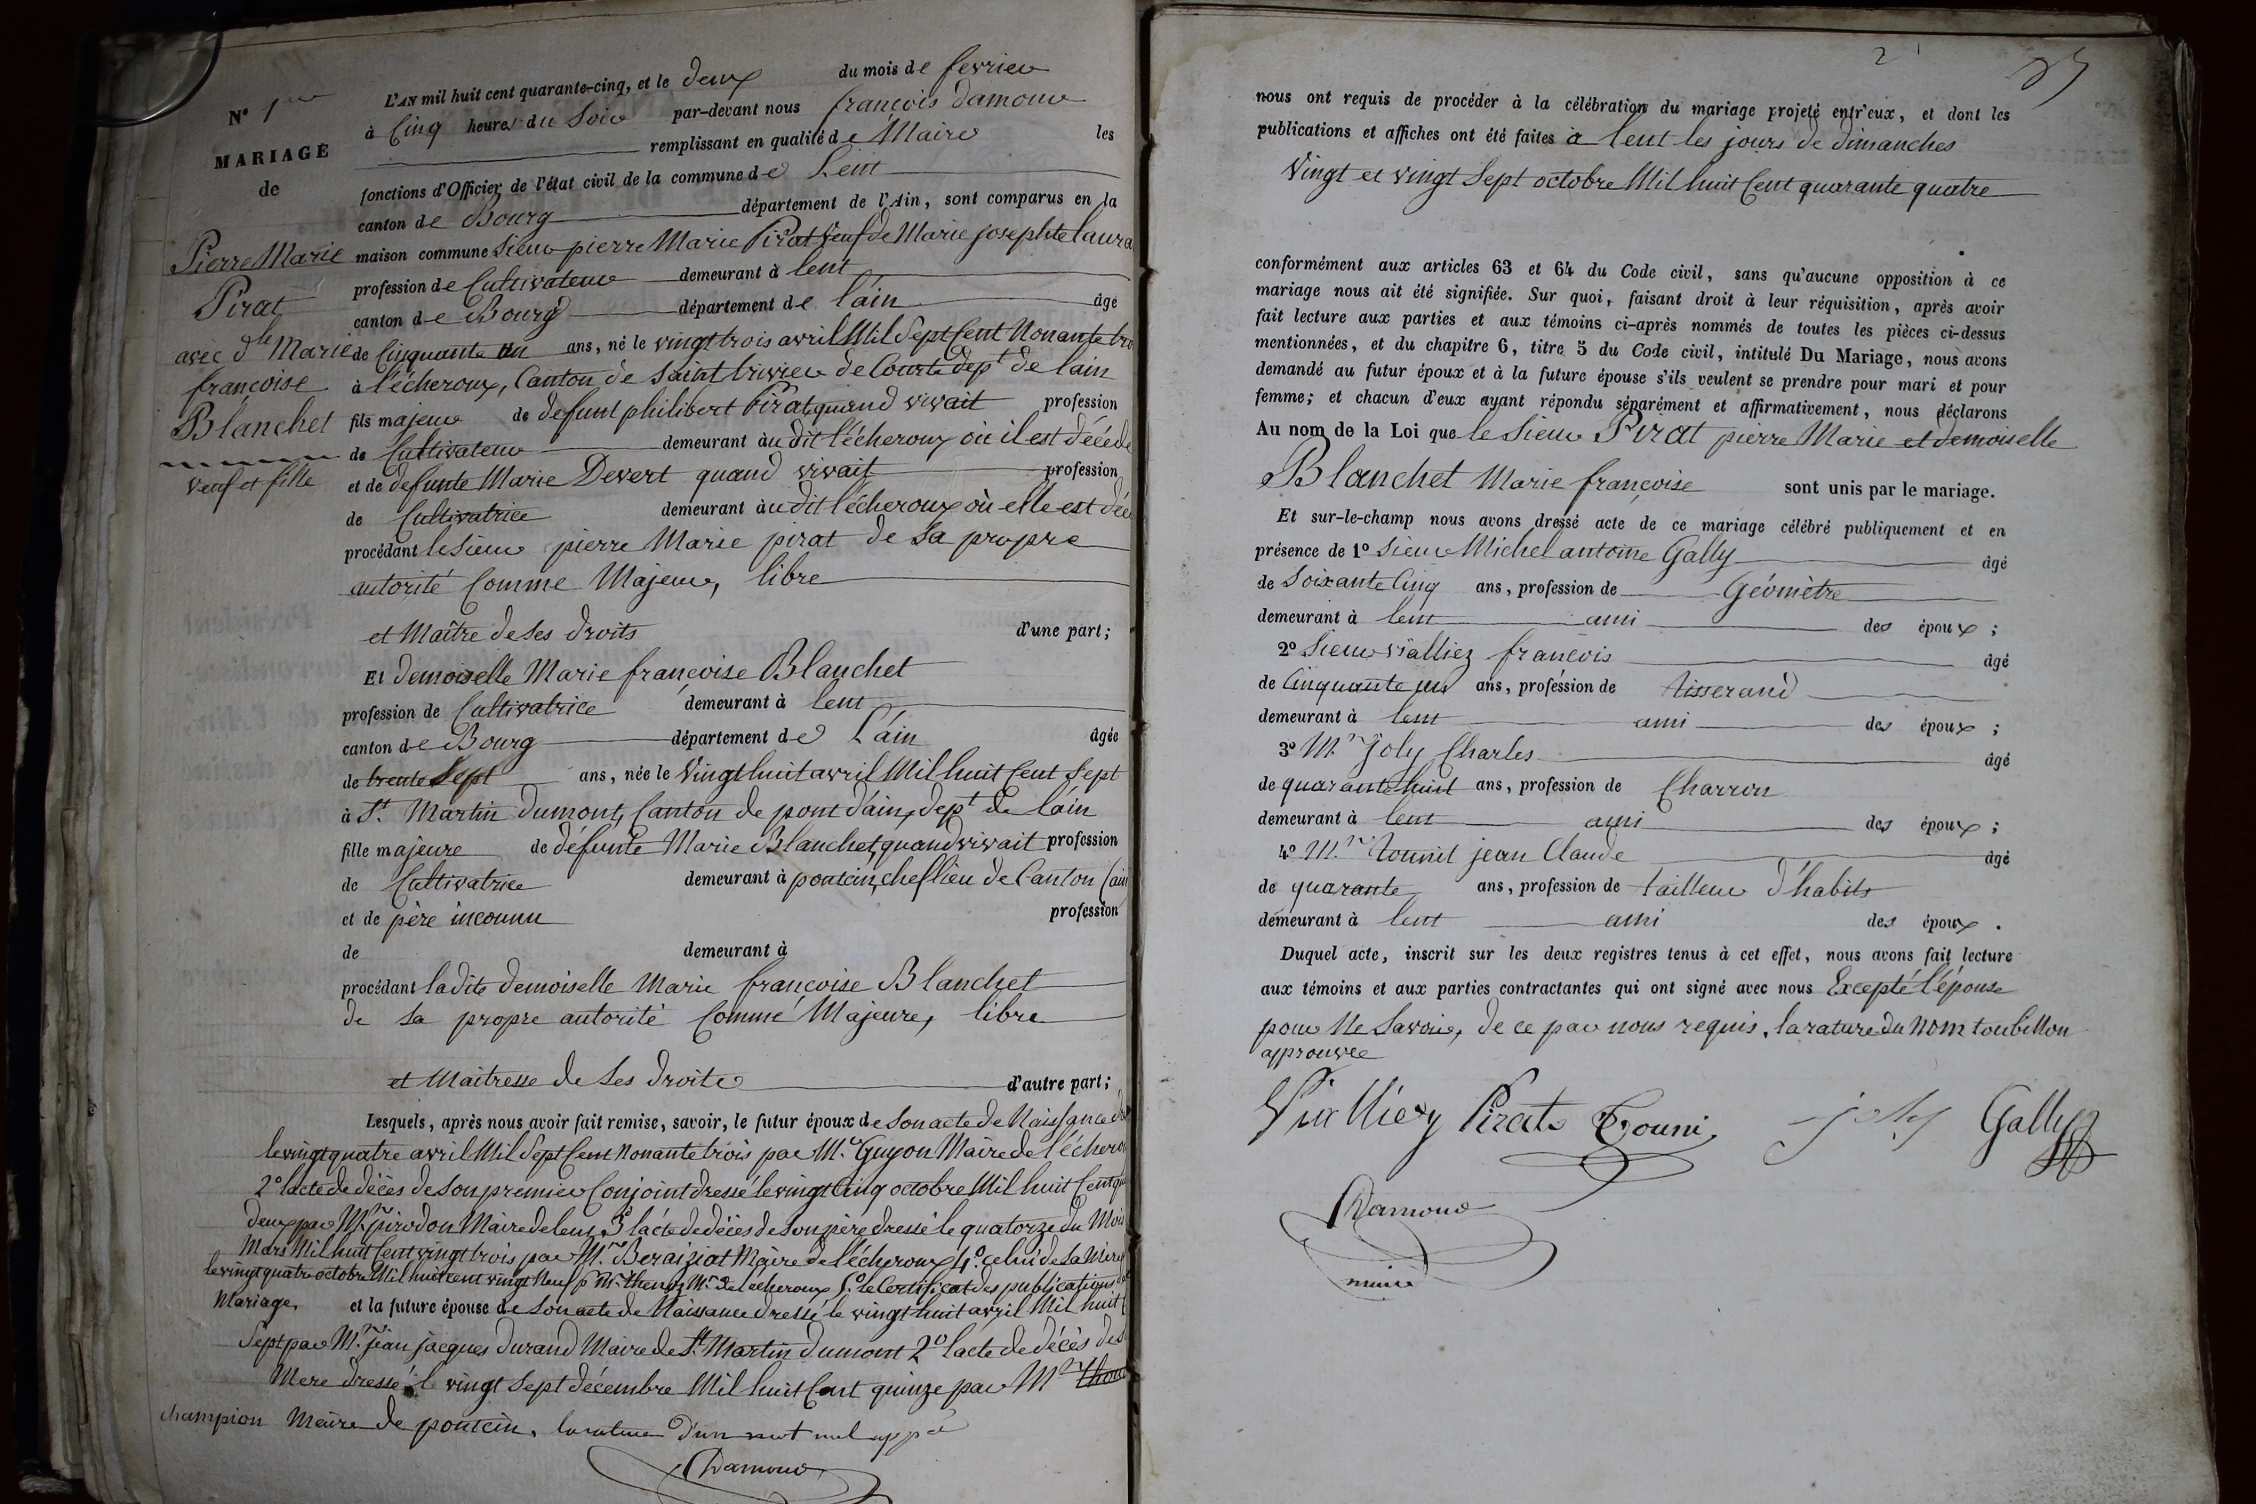 N° 1er
MARIAGE
de
Pierre Marie
Pirat
avec dlle Marie
françoise
Blanchet
veuf et fille
L'AN mil huit cent quarante-cinq, et le deux du mois de fevrier
à Cinq heures du Soir par-devant nous françois damour
remplissant en qualité de Maire les
fonctions d'Officier de l'état civil de la commune de Lent
canton de Bourg département de l'Ain, sont comparus en la
maison commune Sieur pierre Marie Pirat veuf de Marie josephte laura
profession de Cultivateur demeurant à lent
canton de Bourg département de l'ain âgé
de Cinquante un ans, né le vingt trois avril Mil Sept Cent Nonante tro
à l'écheroux, Canton de Saint trivier de Courte dept de l'ain
fils majeur de defunt philibert Pirat, quand vivait profession
de Cultivateur demeurant au dit l'écheroux où il est décédé
et de defunte Marie Devert quand vivait profession
de Cultivatrice demeurant au dit l'écheroux où elle est déc
procédant le Sieur pierre Marie pirat de sa propre
autorité Comme Majeur, libre
et Maître de Ses droits d'une part;
Et demoiselle Marie françoise Blanchet
profession de Cultivatrice demeurant à lent
canton de Bourg département de l'ain âgée
de trente Sept ans, née le Vingt huit avril Mil huit Cent Sept
à St. Martin dumont, Canton de pont d'ain, dept de l'ain
fille majeure de défunte Marie Blanchet, quand vivait profession
de Cultivatrice demeurant à poncin, chef lieu de Canton (ain
et de père inconnu profession
de demeurant à
procédant la dite demoiselle Marie françoise Blanchet
de sa propre autorité Comme Majeure, libre
et Maitresse de Ses droits d'autre part;
Lesquels, après nous avoir fait remise, savoir, le futur époux de Son acte de Naissance d
le vingt quatre avril Mil Sept Cent Nonante trois par Mr. Guyon Maire de l'échero
2° l'acte de décès de Son premier Conjoint dressé le vingt Cinq octobre Mil huit Cent qu
deux par Mr. pirodon Maire de lent, 3° l'acte de décès de Son père dressé le quatorze du Mois
Mars Mil huit Cent vingt trois par Mr. Beraiziat Maire de l'écheroux 4° celui de Sa Mère
le vingt quatre octobre Mil huit cent vingt Neuf p Mr. thenoz Mre de l'écheroux 5° le Certificat des publications d
Mariage, et la future épouse de Son acte de Naissance dressé le vingt huit avril Mil huit C
Sept par Mr. jean jacques durand Maire de St. Martin dumont 2° l'acte de décès de S
Mere dressé le vingt Sept décembre Mil huit Cent quinze par Mr
champion Maire de poncin. la rature d'un mot nul appée
Damour
2
nous ont requis de procéder à la célébration du mariage projeté entr'eux, et dont les
publications et affiches ont été faites à lent les jours de dimanches
Vingt et vingt Sept octobre Mil huit Cent quarante quatre
conformément aux articles 63 et 64 du Code civil, sans qu'aucune opposition à ce
mariage nous ait été signifiée. Sur quoi, faisant droit à leur réquisition, après avoir
fait lecture aux parties et aux témoins ci-après nommés de toutes les pièces ci-dessus
mentionnées, et du chapitre 6, titre 5 du Code civil, intitulé Du Mariage, nous avons
demandé au futur époux et à la future épouse s'ils veulent se prendre pour mari et pour
femme; et chacun d'eux ayant répondu séparément et affirmativement, nous déclarons
Au nom de la Loi que le Sieur Pirat pierre Marie et demoiselle
Blanchet Marie françoise sont unis par le mariage.
Et sur-le-champ nous avons dressé acte de ce mariage célébré publiquement et en
présence de 1° Sieur Michel antoine Gally âgé
de Soixante Cinq ans, profession de Géomètre
demeurant à lent ami des époux;
2° Sieur vialliez francois âgé
de Cinquante un ans, profession de tisserand
demeurant à lent ami des époux;
3° Mr Joly Charles âgé
de quarante huit ans, profession de Charron
demeurant à lent ami des époux;
4° Mr. tounit jean Claude âgé
de quarante ans, profession de tailleur d'habits
demeurant à lent ami des époux.
Duquel acte, inscrit sur les deux registres tenus à cet effet, nous avons fait lecture
aux témoins et aux parties contractantes qui ont signé avec nous Excepté l'épouse
pour Ne Savoir, de ce par nous requis, la rature du Nom toubillon
approuvée
Pirat Touni joly Gally
Damour
maire